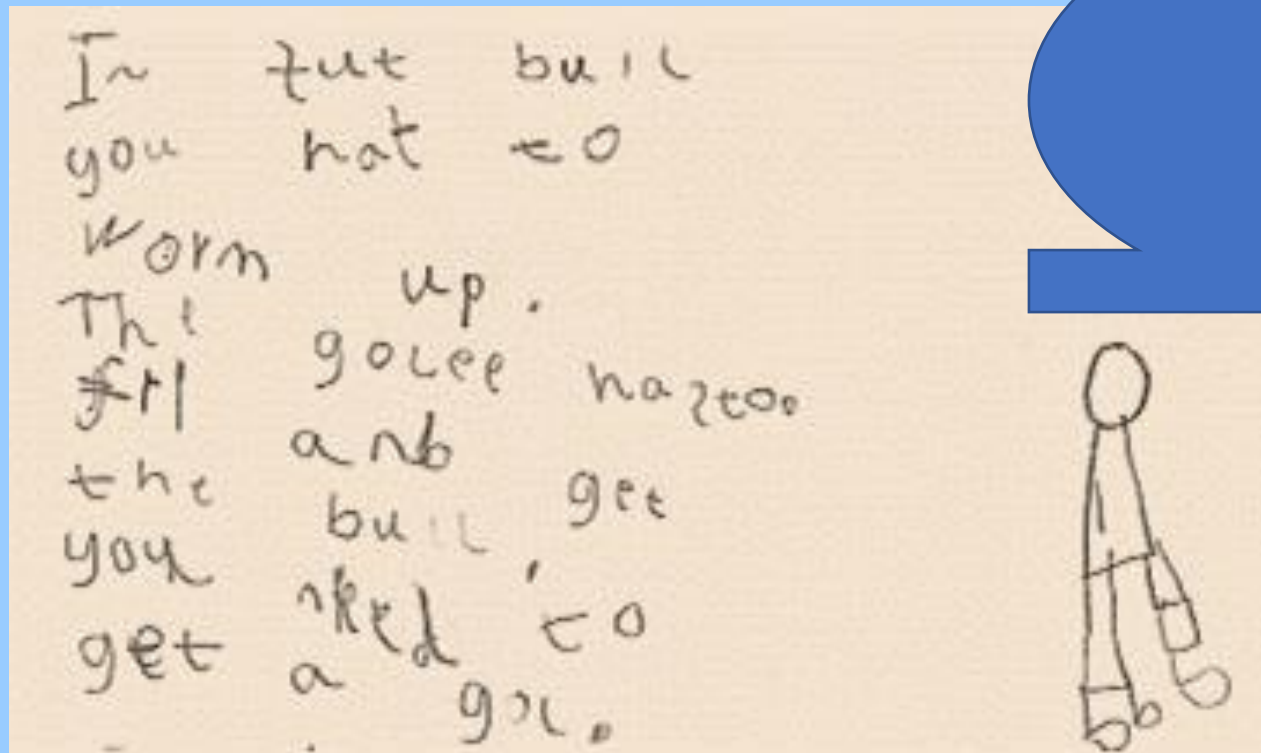 In fut buil
you hat to
worm up.
The golee hazto.
frl anb get
the buil.
you need to
get a gol.